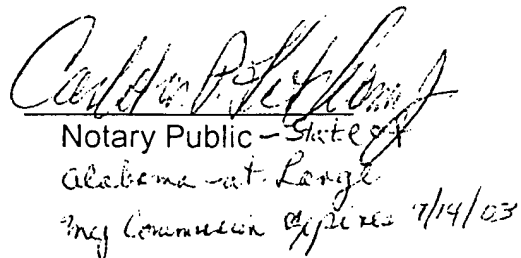 Carleton P.
Notary Public - State of
Alabama - at Large
My Commission Expires 7/14/03